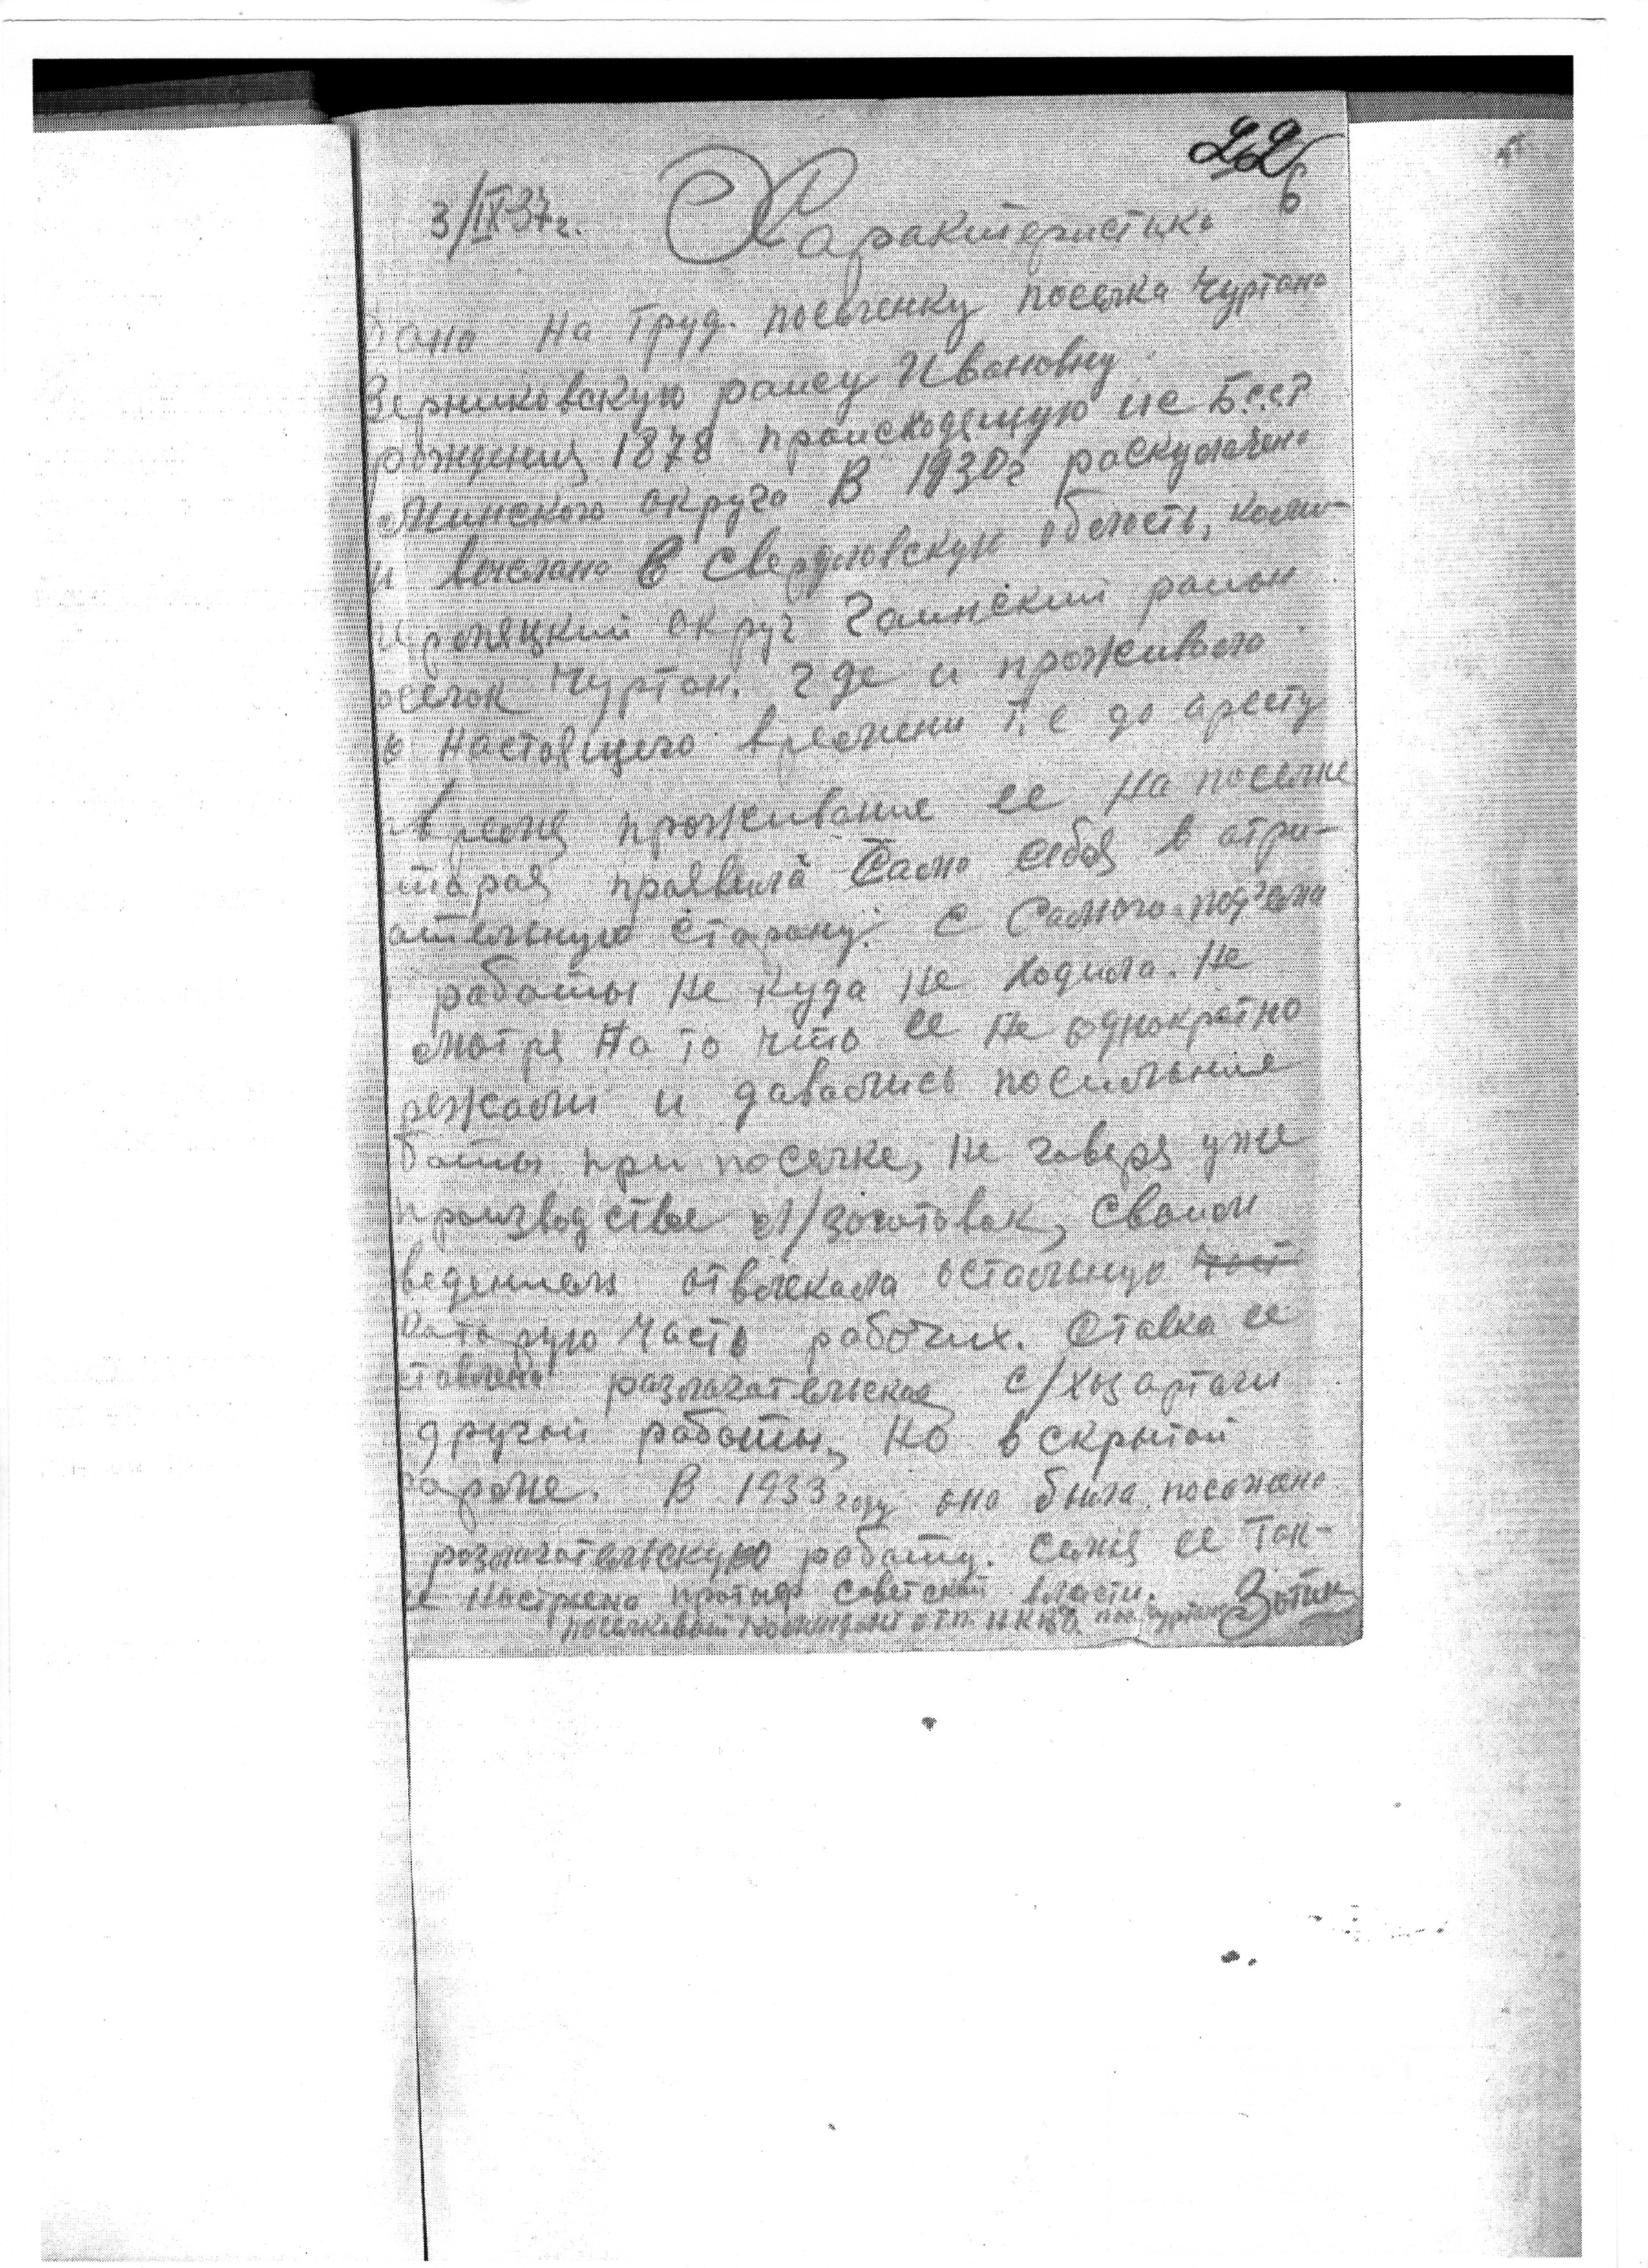 22
6
3/IX-37г. Характеристика
Дана на труд. поселенку поселка Чуртана
Верниковскую раису Ивановну
рождения 1878 происходящую ис Б.С.С.Р
Минского округа В 1930г раскулачена
и выслана в Свердловскую область, коми-
пермяцкий округ Гаинский раион
оселок Чуртан. где и проживала
о настоящего времени т.е до аресту
время проживание ее на поселке
торая проявила Само себя в отри-
ательную сторону. С Самого
работы не куда не ходила. Не
смотря на то што ее не однократно
режали и давались посильные
боты при поселке, не говеря уже
производстве л/заготовак, сваим
ведением отвлекала остальную част
каторую часть рабочих. Ставка ее
ставлена разлагательская с/хоз артели
другой работы, но вскрытой
ароме. В 1933 году она была посажена
разлагательскую работу. Семья ее Так-
е настроена против советской власти.
поселковый комендант о.т.п. НКВД пос. Чуртан Зотик